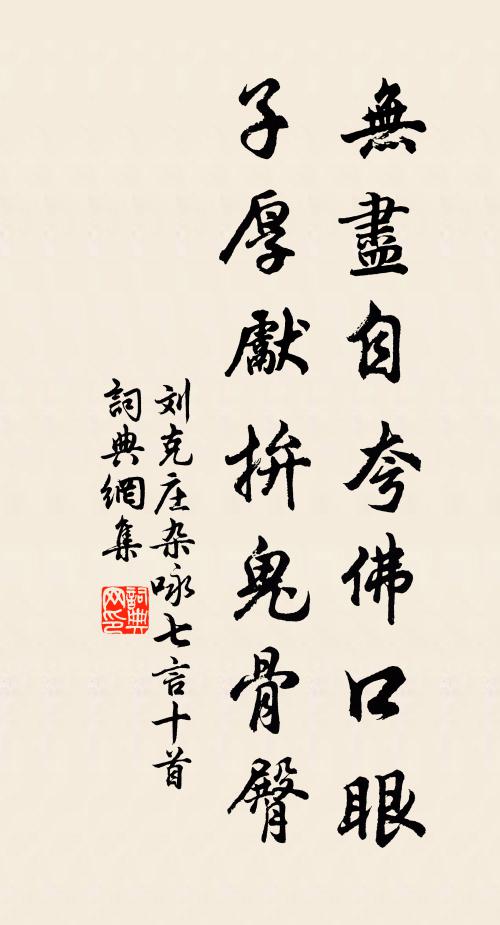 無盡自夸佛口眼
子厚獻拚鬼骨臀
刘克庄杂咏七言十首
詞典網集
詞典网印